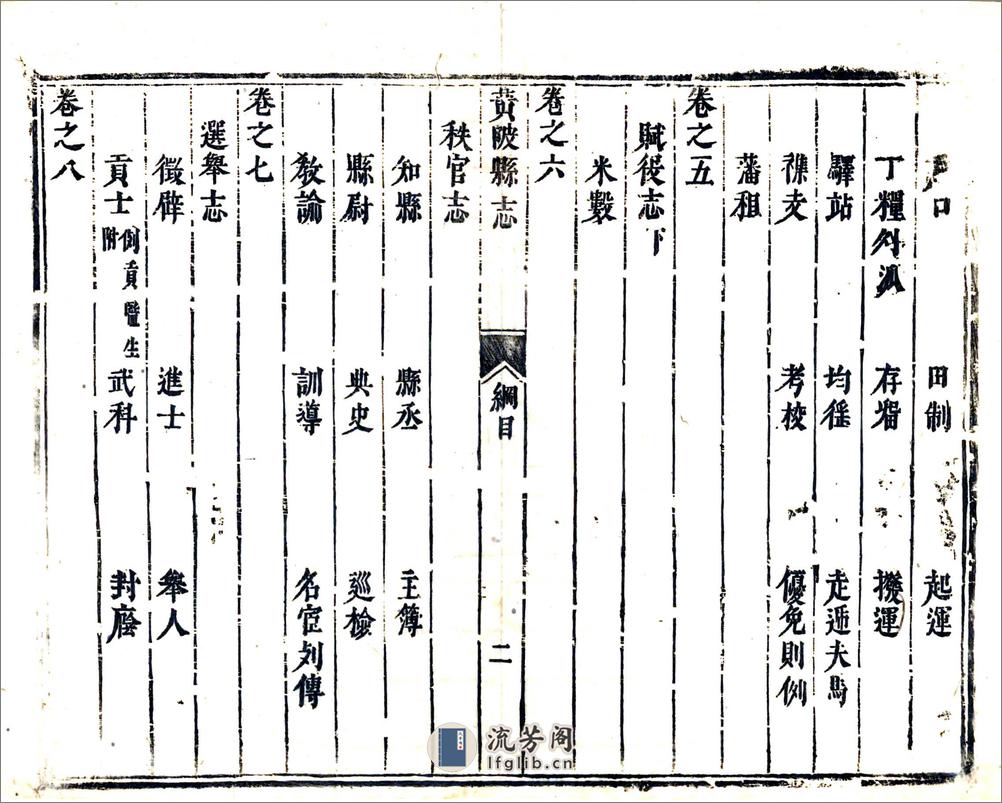 戶口 田制 起運
丁糧外派 存畱 撥運
驛站 均徭 走遞夫馬
雜支 考校 優免則例
藩租
卷之五
賦役志下
米穀
卷之六
黃陂縣志 綱目 二
秩官志
知縣 縣丞 主簿
縣尉 典史 巡檢
敎諭 訓導 名宦列傳
卷之七
選舉志
徵辟 進士 舉人
貢士附例貢監生 武科 封廕
卷之八
流芳阁
lfglib.cn